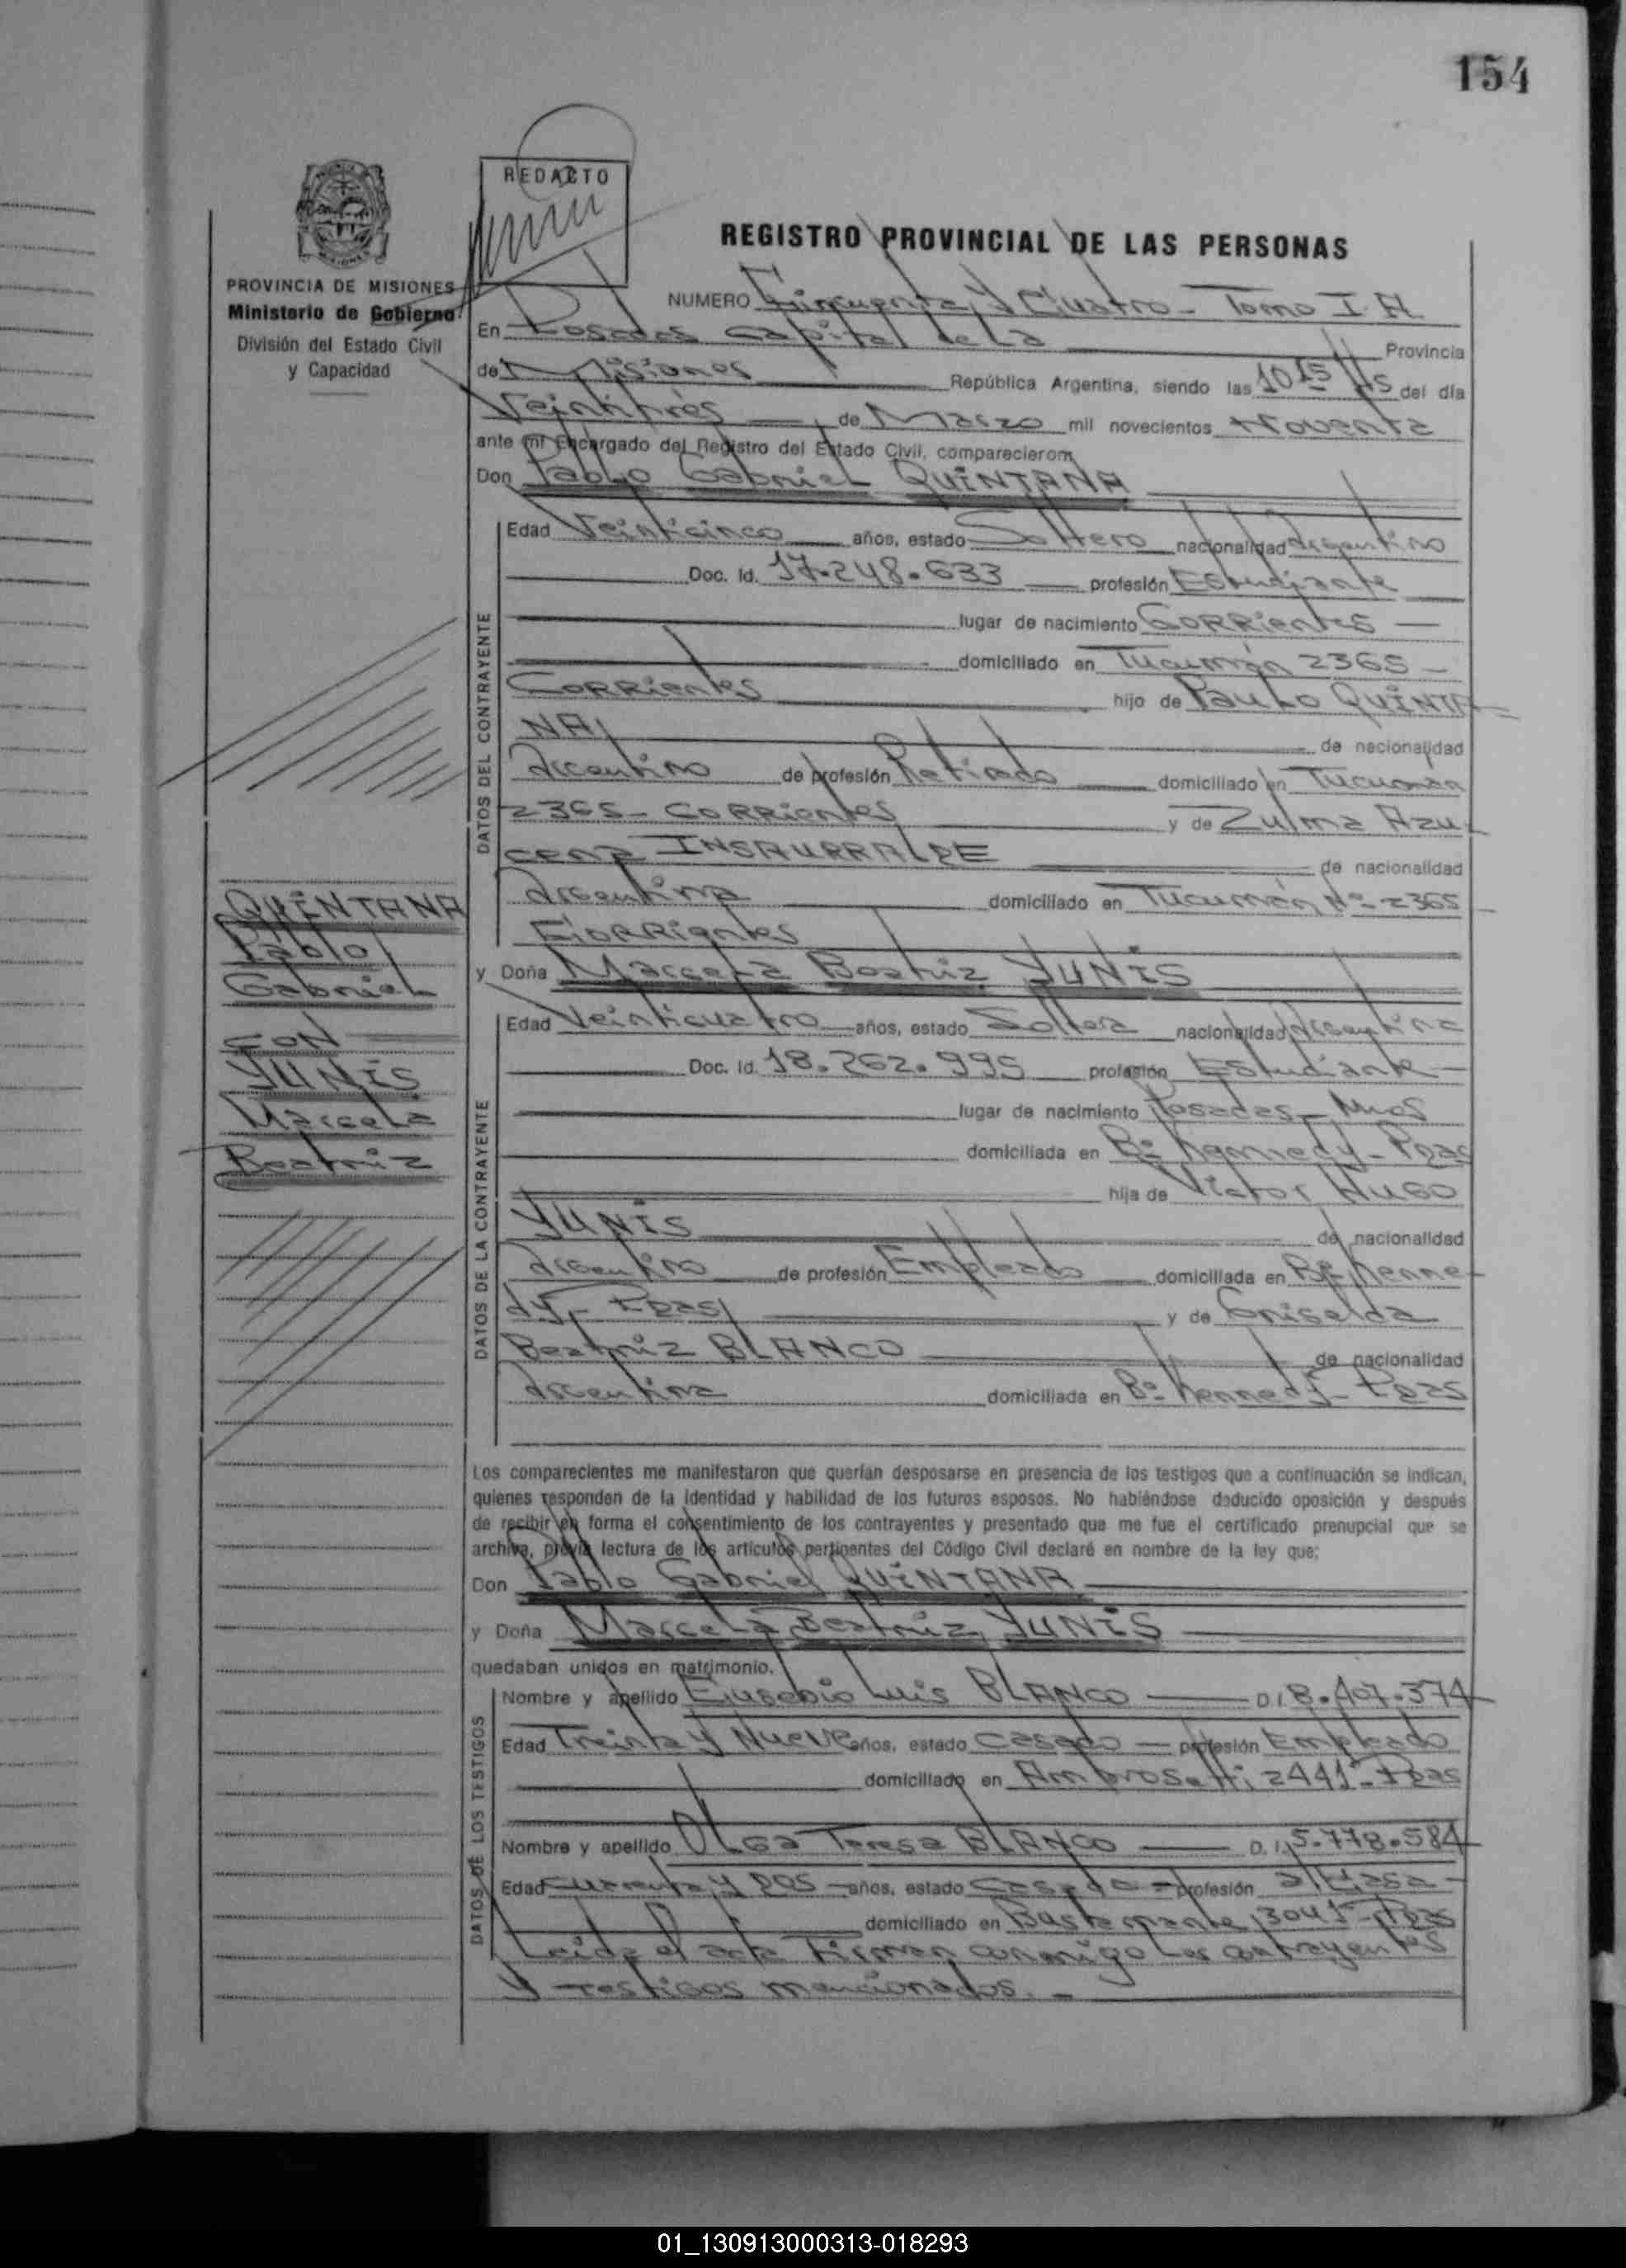 154
REDACTO
REGISTRO PROVINCIAL DE LAS PERSONAS
PROVINCIA DE MISIONES
Ministerio de Gobierno
División del Estado Civil
y Capacidad
NUMERO Cincuenta y Cuatro - Tomo I. A
En Posadas Capital de La Provincia
de Misiones República Argentina, siendo las 10 15 Hs del día
Veintitrès de Marzo mil novecientos Noventa
ante mí Encargado del Registro del Estado Civil, comparecieron
Don Pablo Gabriel QUINTANA
DATOS DEL CONTRAYENTE
Edad Veinticinco años, estado Soltero nacionalidad Argentino
Doc. Id. 17.248.633 profesión Estudiante
lugar de nacimiento Corrientes
domiciliado en Tucumán 2365 -
Corrientes hijo de Paulo QUINTA
NA de nacionalidad
Argentino de profesión Retirado domiciliado en Tucuman
2365 - Corrientes y de Zulma Azu
cena INSAURRALDE de nacionalidad
Argentina domiciliado en Tucumán Nº 2365
Corrientes
y Doña Marcela Beatriz YUNIS
QUINTANA
Pablo
Gabriel
CON
YUNIS
Marcela
Beatriz
DATOS DE LA CONTRAYENTE
Edad Veinticuatro años, estado Soltera nacionalidad Argentina
Doc. Id. 18.262.995 profesión Estudiante
lugar de nacimiento Posadas - Mnes
domiciliada en Bº Kennedy - Pdas
hija de Victor Hugo
YUNIS de nacionalidad
Argentino de profesión Empleado domiciliada en Bº Kenne
dy - Pdas y de Griselda
Beatriz BLANCO de nacionalidad
Argentina domiciliada en Bº Kennedy - Pdas
Los comparecientes me manifestaron que querían desposarse en presencia de los testigos que a continuación se indican,
quienes responden de la identidad y habilidad de los futuros esposos. No habiéndose deducido oposición y después
de recibir en forma el consentimiento de los contrayentes y presentado que me fue el certificado prenupcial que se
archiva, previa lectura de los artículos pertinentes del Código Civil declaré en nombre de la ley que;
Don Pablo Gabriel QUINTANA
y Doña Marcela Beatriz YUNIS
quedaban unidos en matrimonio.
DATOS DE LOS TESTIGOS
Nombre y apellido Eusebio Luis BLANCO D.I. 8.407.374
Edad Treinta y Nueve años, estado Casado profesión Empleado
domiciliado en Ambrosetti 2441 - Pdas
Nombre y apellido Olga Teresa BLANCO D.I. 5.778.584
Edad Cuarenta y Dos años, estado Casada profesión
domiciliado en Bustamante 3041 - Pdas
Leida el acta Firman conmigo Los contrayentes
y testigos mencionados. -
01_130913000313-018293